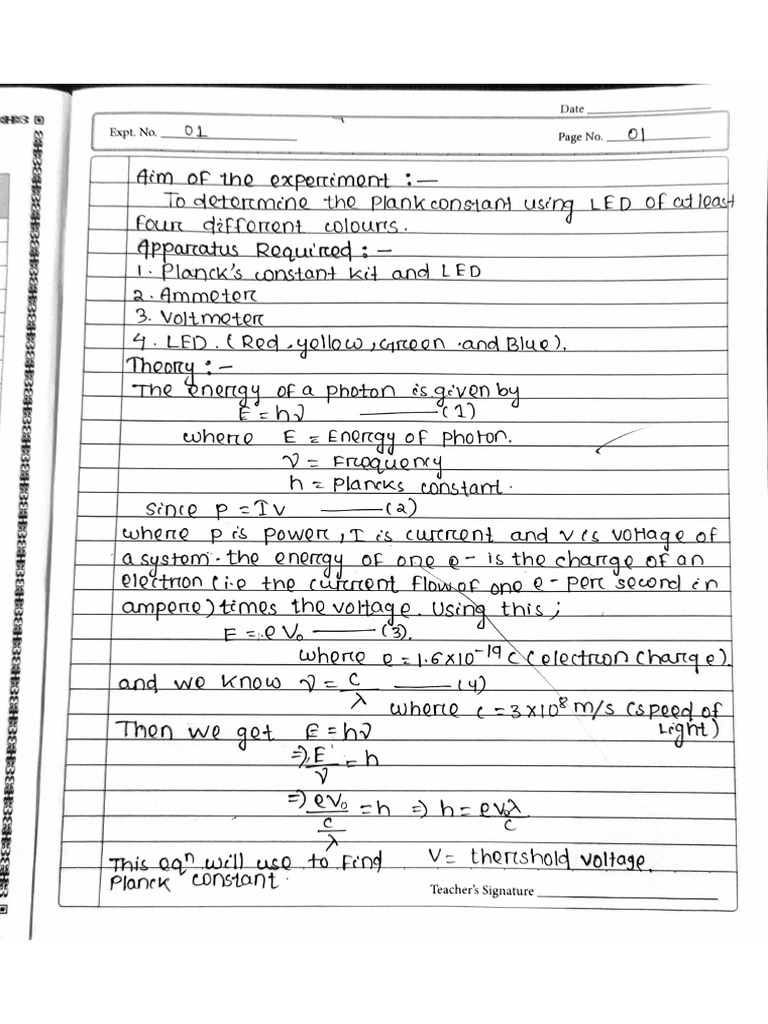 Date
Expt. No. 01
Page No. 01
Aim of the experriment :-
To determine the Plank constant using LED of at least
four different colours.
Apparatus Required :-
1. Planck's constant kit and LED
2. Ammeter
3. Voltmeter
4. LED. (Red, yellow, Green and Blue).
Theory :-
The energy of a photon is given by
E = hν ——— (1)
where E = Energy of photon.
ν = Frequency
h = Plancks constant.
Since P = IV ——— (2)
where P is power, I is current and V is voltage of
a system. the energy of one e- is the charge of an
electron (i.e the current flow of one e- per second in
ampere) times the voltage. Using this;
E = eV₀ ——— (3).
where e = 1.6×10⁻¹⁹ C (electron charge).
and we know ν = c/λ ——— (4)
where c = 3×10⁸ m/s (speed of
Light)
Then we get E = hν
⇒ E/ν = h
⇒ eV₀/(c/λ) = h ⇒ h = eV₀λ/c
This eqⁿ will use to find V = thershold voltage.
Planck constant.
Teacher's Signature